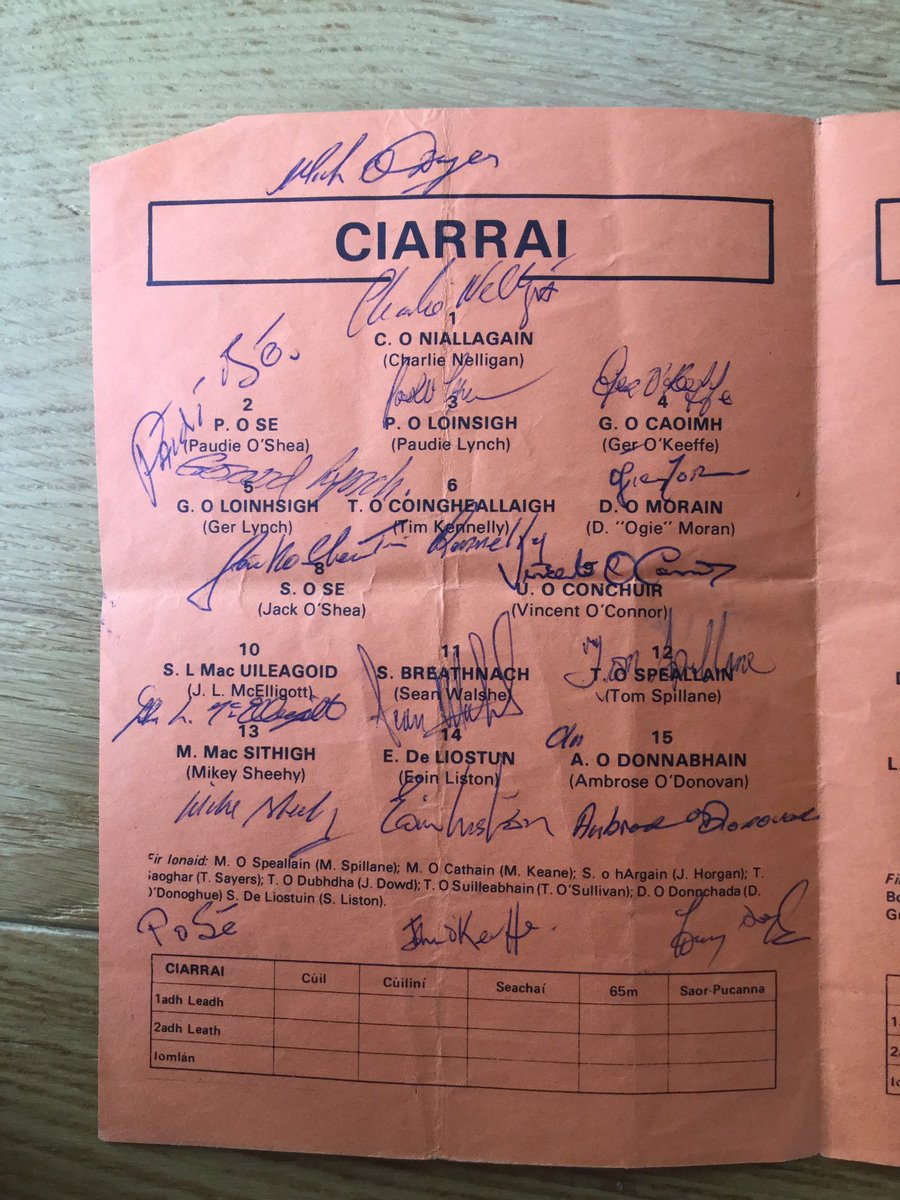 Mick O Dwyer
CIARRAI
Charlie Nelligan
1
C. O NIALLAGAIN
(Charlie Nelligan)
Páidí Ó Sé. Ger O'Keeffe
2 3 4
P. O SE P. O LOINSIGH G. O CAOIMH
(Paudie O'Shea) (Paudie Lynch) (Ger O'Keeffe)
Gerard Lynch. Ogie Moran
5 6 7
G. O LOINHSIGH T. O COINGHEALLAIGH D. O MORAIN
(Ger Lynch) (Tim Kennelly) (D. "Ogie" Moran)
Tim Kennelly Vincent O Connor
8 9
S. O SE U. O CONCHUIR
(Jack O'Shea) (Vincent O'Connor)
Tom Spillane
10 11 12
S. L Mac UILEAGOID S. BREATHNACH T. O SPEALLAIN
(J. L. McElligott) (Sean Walshe) (Tom Spillane)
John L. McElligott Sean Walsh
13 14 15
M. Mac SITHIGH E. De LIOSTUN A. O DONNABHAIN
(Mikey Sheehy) (Eoin Liston) (Ambrose O'Donovan)
Mike Sheehy Eoin Liston Ambrose O'Donovan
Fir Ionaid: M. O Speallain (M. Spillane); M. O Cathain (M. Keane); S. o hArgain (J. Horgan); T.
Saoghar (T. Sayers); T. O Dubhdha (J. Dowd); T. O Suilleabhain (T. O'Sullivan); D. O Donnchada (D.
O'Donoghue) S. De Liostuin (S. Liston).
P Ó Sé John O'Keeffe
CIARRAI Cúil Cúilíní Seachaí 65m Saor-Pucanna
1adh Leadh
2adh Leath
Iomlán